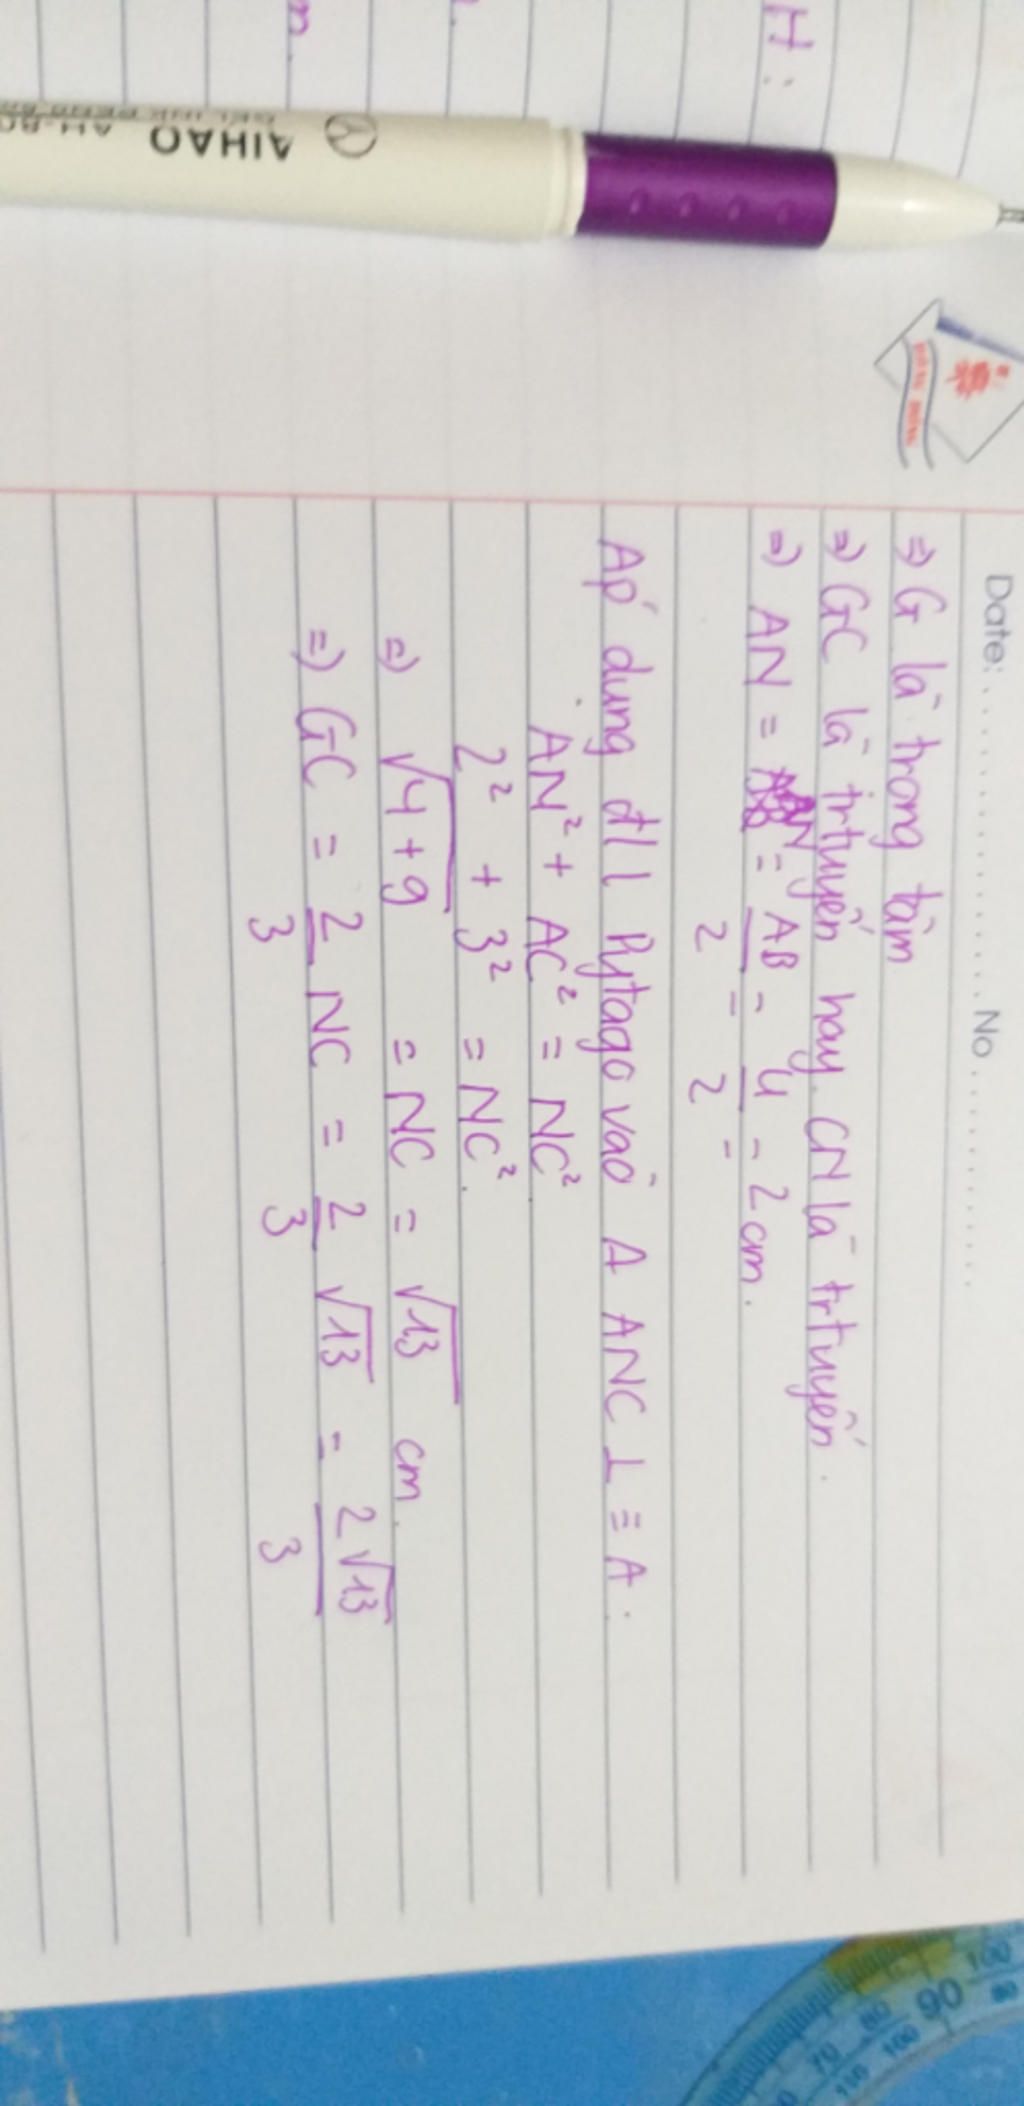 H :
AIHAO
Date: No
⇒ G là trọng tâm
⇒ GC là trtuyến hay CN là trtuyến.
⇒ AN = BN = AB/2 = 4/2 = 2 cm.
Áp dụng đl Pytago vào Δ ANC ⊥ = A.
AN² + AC² = NC²
2² + 3² = NC².
⇒ √4+9 = NC = √13 cm.
⇒ GC = 2/3 NC = 2/3 √13 = 2√13/3
100 80
90
80 100
70